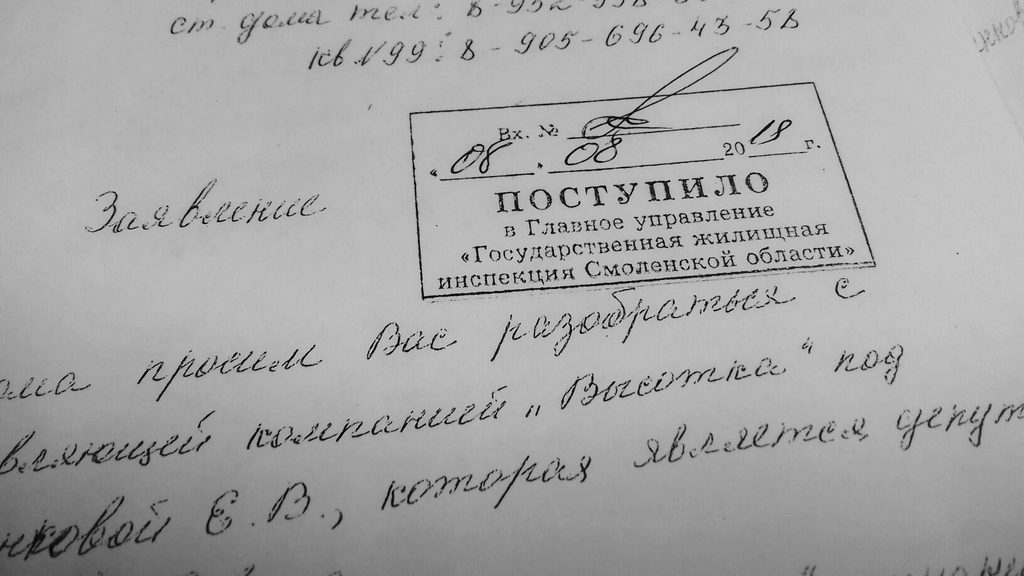 ст. дома тел: 8-952-998-
кв. №99: 8-905-696-43-58
Вх. №
"08" 08 2018 г.
ПОСТУПИЛО
в Главное управление
«Государственная жилищная
инспекция Смоленской области»
Заявление
ома просим Вас разобраться с
вляющей компанией „Высотка“ под
нковой Е.В., которая является депут